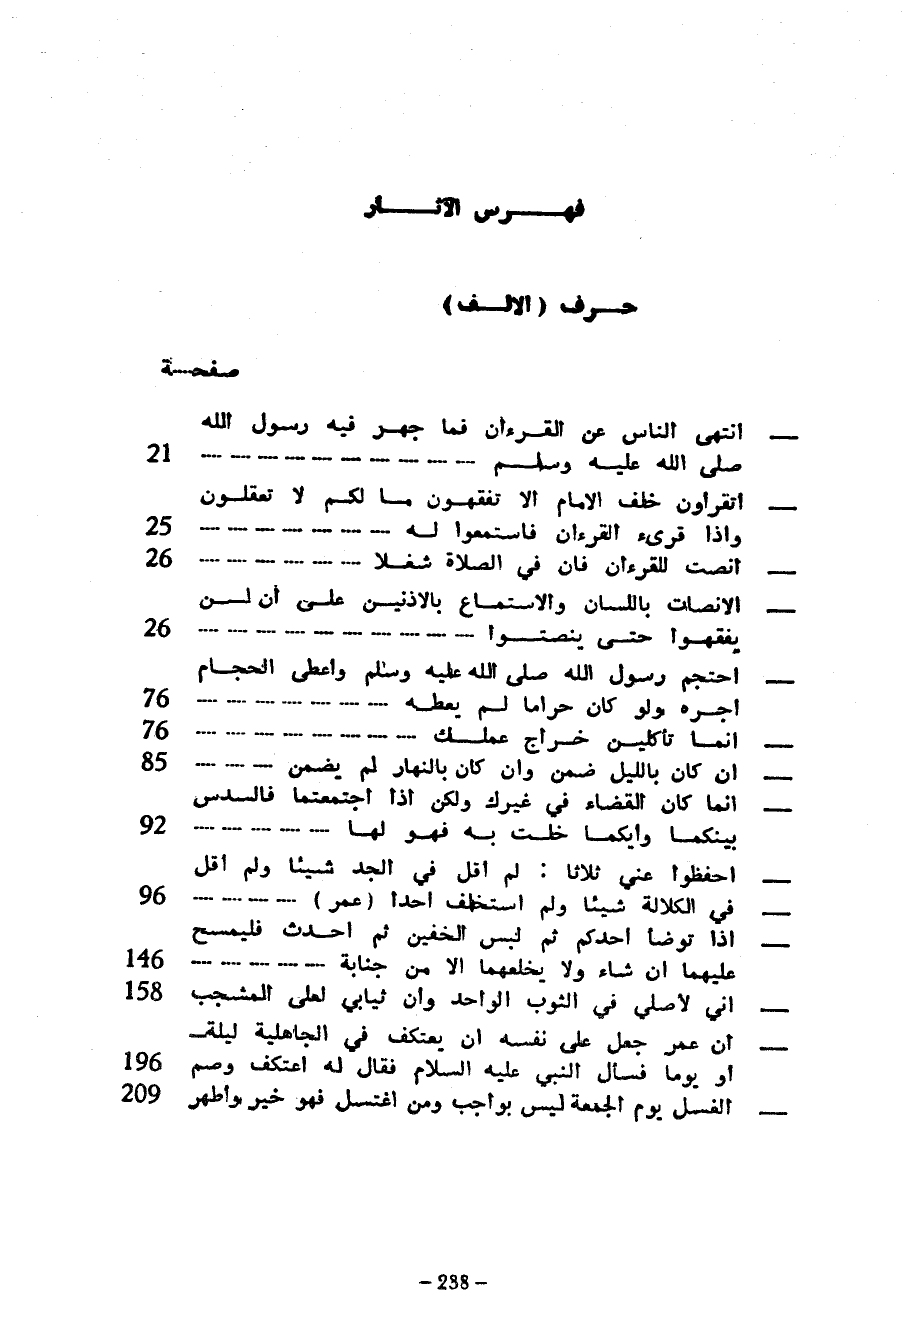 فهرس الآثار
حرف ( الالف )
صفحة
— انتهى الناس عن القرءان فما جهر فيه رسول الله
صلى الله عليه وسلم — — — — — — — — — — 21
— أتقرأون خلف الامام ألا تفقهون ما لكم لا تعقلون
واذا قرىء القرءان فاستمعوا له — — — — — — — 25
— أنصت للقرءان فان في الصلاة شغلا — — — — — — 26
— الانصات باللسان والاستماع بالاذنين على أن لن
يفقهوا حتى ينصتوا — — — — — — — — — — 26
— احتجم رسول الله صلى الله عليه وسلم وأعطى الحجام
اجره ولو كان حراما لم يعطه — — — — — — — 76
— انما تأكلين خراج عملك — — — — — — — — 76
— ان كان بالليل ضمن وان كان بالنهار لم يضمن — — — 85
— انما كان القضاء في غيرك ولكن اذا اجتمعتما فالسدس
بينكما وأيكما خلت به فهو لها — — — — — 92
— احفظوا عني ثلاثا : لم أقل في الجد شيئا ولم أقل
— في الكلالة شيئا ولم استخلف احدا ( عمر ) — — — — 96
— اذا توضأ احدكم ثم لبس الخفين ثم احدث فليمسح
عليهما ان شاء ولا يخلعهما الا من جنابة — — — — — 146
— اني لأصلي في الثوب الواحد وان ثيابي لعلى المشجب 158
— أن عمر جعل على نفسه ان يعتكف في الجاهلية ليلة
أو يوما فسأل النبي عليه السلام فقال له اعتكف وصم 196
— الغسل يوم الجمعة ليس بواجب ومن اغتسل فهو خير وأطهر 209
– 238 –